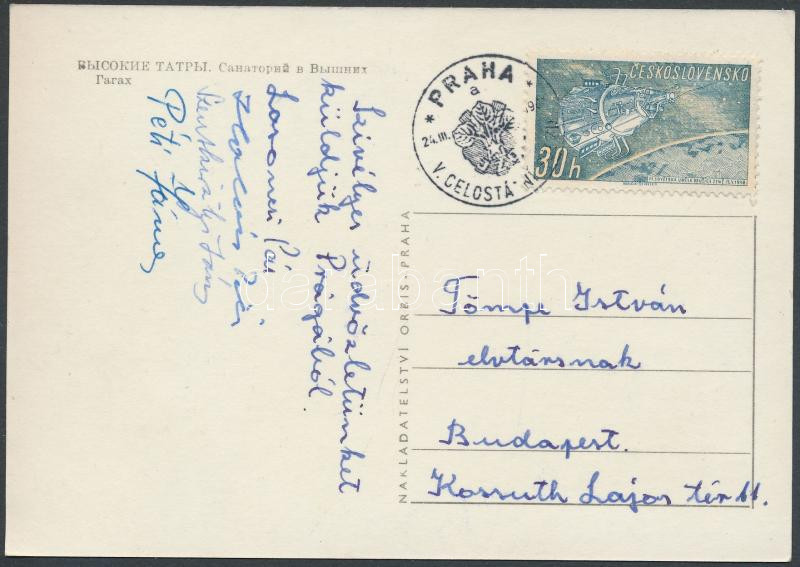 ВЫСОКИЕ ТАТРЫ. Санаторий в Вышних
Гагах
* PRAHA *
a
24.III.
V. CELOSTÁ
ČESKOSLOVENSKO
30h
Szivélyes üdvözletünket
küldjük Prágából.
Losonczi Pál
Szentistványi
Péti János
NAKLADATELSTVÍ ORBIS-PRAHA
Tömpe István
elvtársnak
Budapest.
Kossuth Lajos tér 11.
darabanth